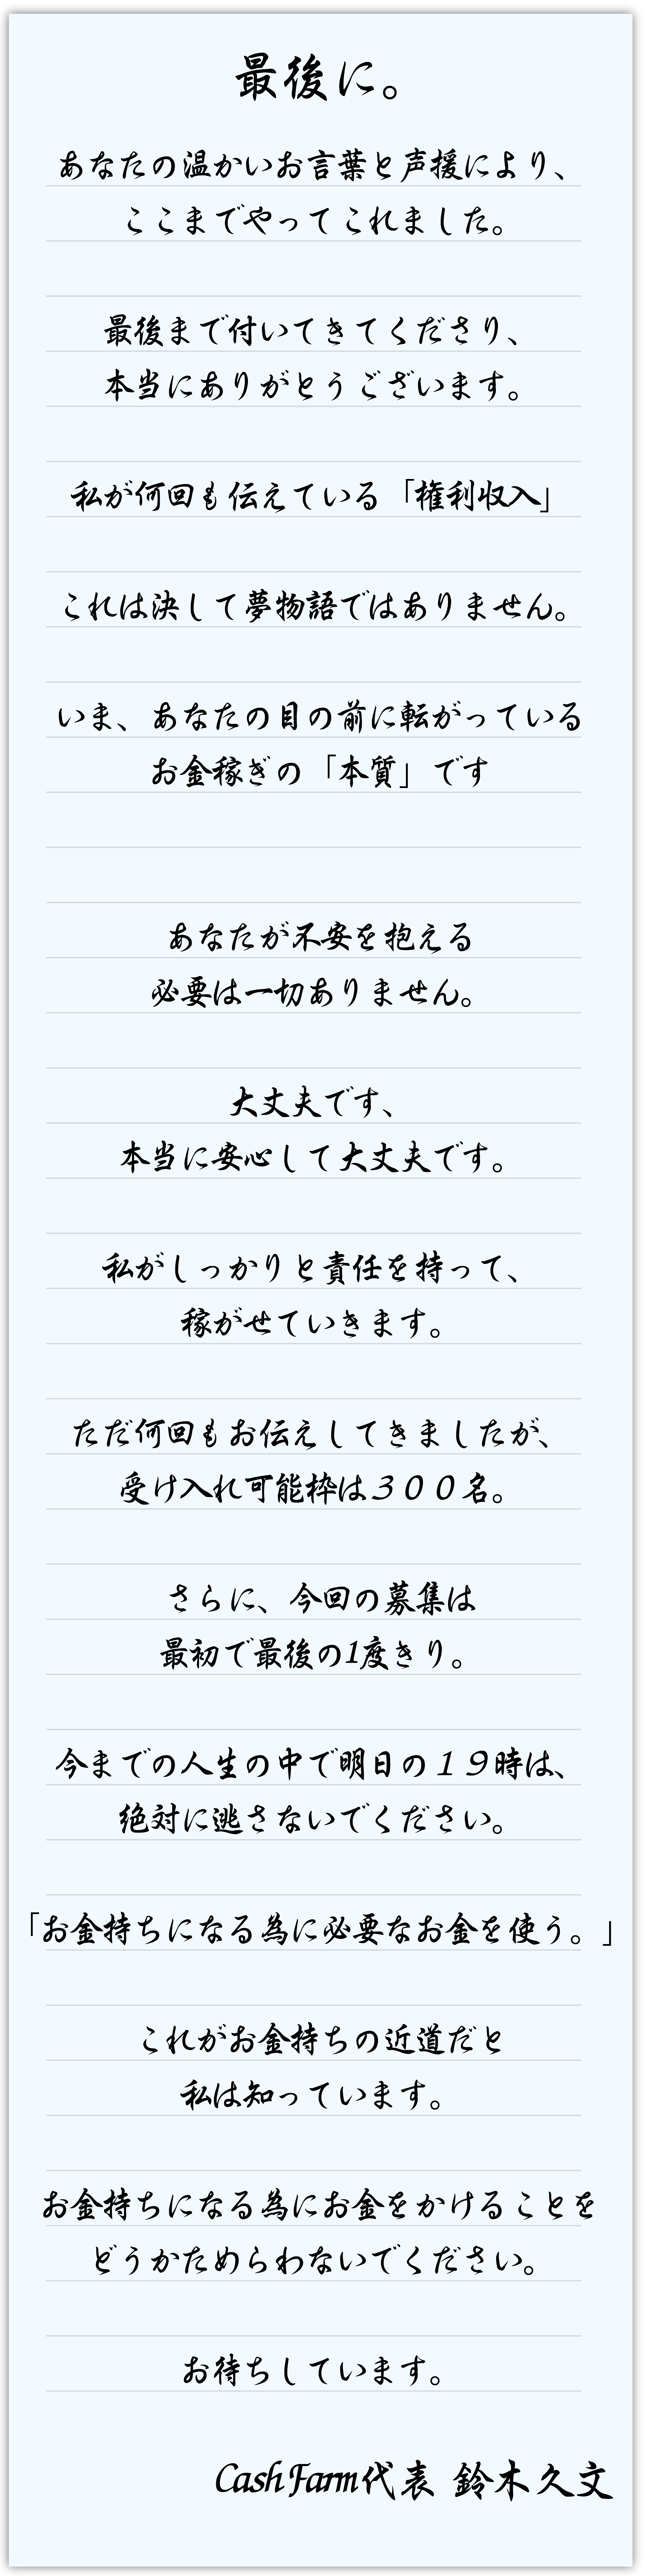 最後に。
あなたの温かいお言葉と声援により、
ここまでやってこれました。
最後まで付いてきてくださり、
本当にありがとうございます。
私が何回も伝えている「権利収入」
これは決して夢物語ではありません。
いま、あなたの目の前に転がっている
お金稼ぎの「本質」です
あなたが不安を抱える
必要は一切ありません。
大丈夫です、
本当に安心して大丈夫です。
私がしっかりと責任を持って、
稼がせていきます。
ただ何回もお伝えしてきましたが、
受け入れ可能枠は３００名。
さらに、今回の募集は
最初で最後の1度きり。
今までの人生の中で明日の１９時は、
絶対に逃さないでください。
「お金持ちになる為に必要なお金を使う。」
これがお金持ちの近道だと
私は知っています。
お金持ちになる為にお金をかけることを
どうかためらわないでください。
お待ちしています。
Cash Farm代表 鈴木久文